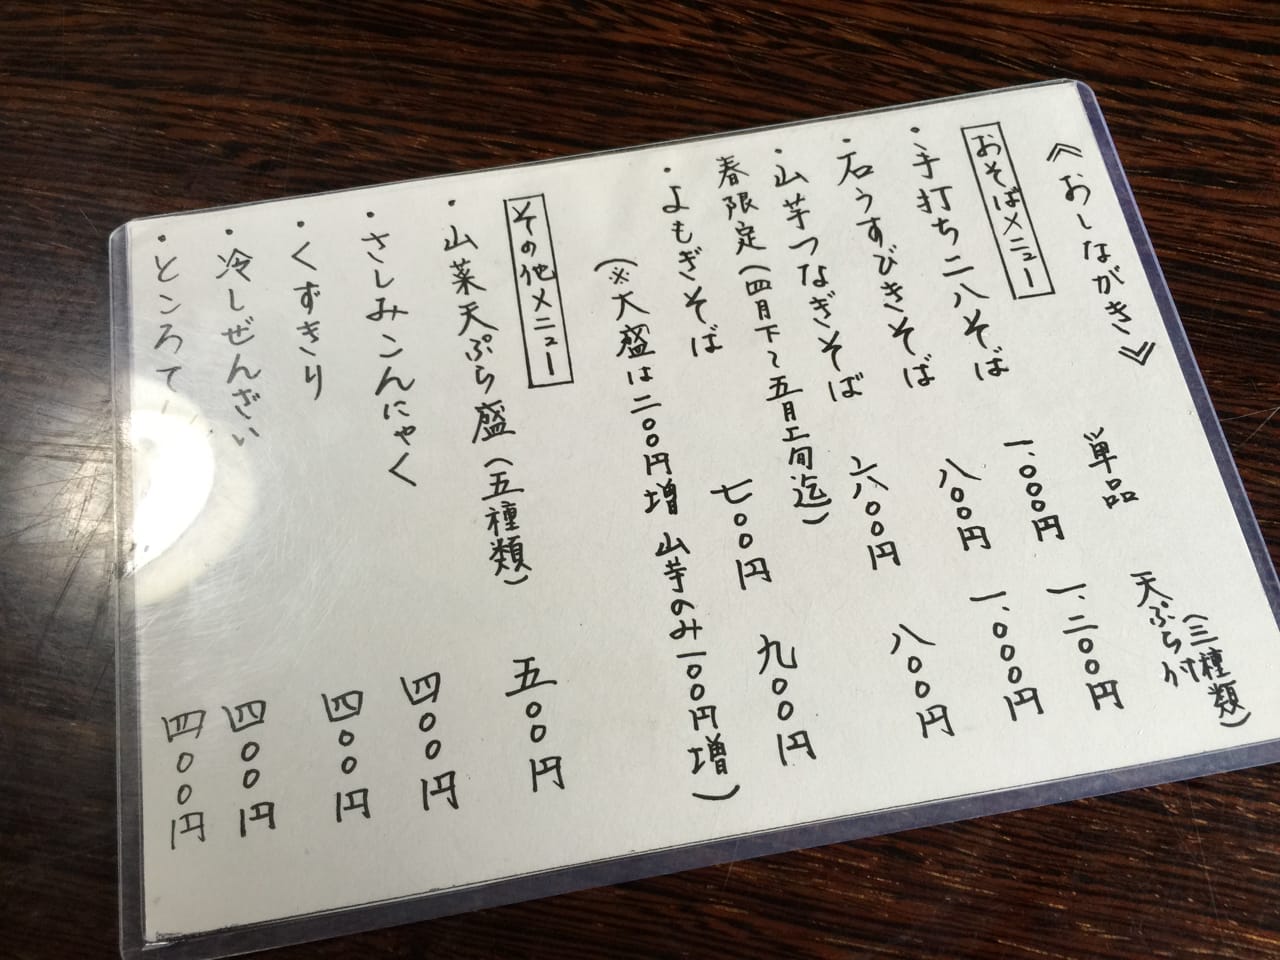 《おしながき》
単品 天ぷら付(三種類)
おそばメニュー
・手打ち二八そば 一、〇〇〇円 一、二〇〇円
・石うすびきそば 八〇〇円 一、〇〇〇円
・山芋つなぎそば 六〇〇円 八〇〇円
春限定(四月下〜五月上旬迄)
・よもぎそば 七〇〇円 九〇〇円
(※大盛は二〇〇円増 山芋のみ一〇〇円増)
その他メニュー
・山菜天ぷら盛(五種類) 五〇〇円
・さしみこんにゃく 四〇〇円
・くずきり 四〇〇円
・冷しぜんざい 四〇〇円
・ところてん 四〇〇円